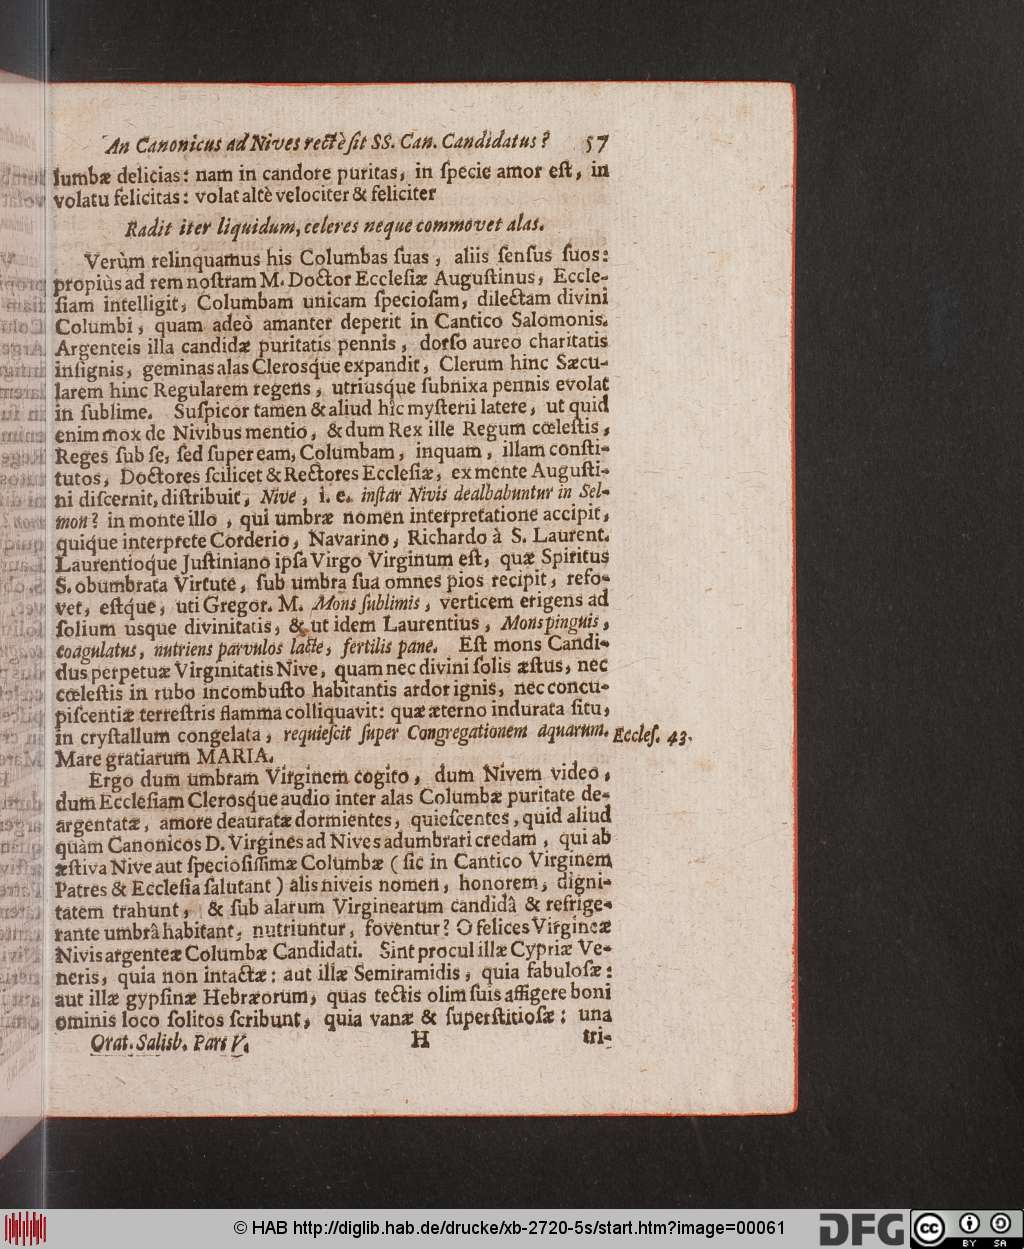 An Canonicus ad Nives rectè ſit SS. Can. Candidatus? 57
lumbæ delicias: nam in candore puritas, in ſpecie amor eſt, in
volatu felicitas: volat altè velociter & feliciter
Radit iter liquidum, celeres neque commovet alas.
Verùm relinquamus his Columbas ſuas, aliis ſenſus ſuos:
propiùs ad rem noſtram M. Doctor Eccleſiæ Auguſtinus, Eccle-
ſiam intelligit, Columbam unicam ſpecioſam, dilectam divini
Columbi, quam adeò amanter deperit in Cantico Salomonis.
Argenteis illa candidæ puritatis pennis, dorſo aureo charitatis
inſignis, geminas alas Clerosq́ue expandit, Clerum hinc Sæcu-
larem hinc Regularem regens, utriusq́ue ſubnixa pennis evolat
in ſublime. Suſpicor tamen & aliud hîc myſterii latere, ut quid
enim mox de Nivibus mentio, & dum Rex ille Regum cœleſtis,
Reges ſub ſe, ſed ſuper eam, Columbam, inquam, illam conſti-
tutos, Doctores ſcilicet & Rectores Eccleſiæ, ex mente Auguſti-
ni diſcernit, diſtribuit, Nive, i. e. inſtar Nivis dealbabuntur in Sel-
mon? in monte illo, qui umbræ nomen interpretatione accipit,
quiq́ue interprete Corderio, Navarino, Richardo à S. Laurent.
Laurentioque Juſtiniano ipſa Virgo Virginum eſt, quæ Spiritus
S. obumbrata Virtute, ſub umbra ſua omnes pios recipit, refo-
vet, eſtq́ue, uti Gregor. M. Mons ſublimis, verticem erigens ad
ſolium usque divinitatis, & ut idem Laurentius, Mons pinguis,
coagulatus, nutriens parvulos lacte, fertilis pane. Eſt mons Candi-
dus perpetuæ Virginitatis Nive, quam nec divini ſolis æſtus, nec
cœleſtis in rubo incombuſto habitantis ardor ignis, nec concu-
piſcentiæ terreſtris flamma colliquavit: quæ æterno indurata ſitu,
in cryſtallum congelata, requieſcit ſuper Congregationem aquarum. Eccleſ. 43.
Mare gratiarum MARIA.
Ergo dum umbram Virginem cogito, dum Nivem video,
dum Eccleſiam Clerosq́ue audio inter alas Columbæ puritate de-
argentatæ, amore deauratæ dormientes, quieſcentes, quid aliud
quàm Canonicos D. Virgines ad Nives adumbrari credam, qui ab
æſtiva Nive aut ſpecioſiſſimæ Columbæ (ſic in Cantico Virginem
Patres & Eccleſia ſalutant) alis niveis nomen, honorem, digni-
tatem trahunt, & ſub alarum Virginearum candidâ & refrige-
rante umbrâ habitant, nutriuntur, foventur? O felices Virgineæ
Nivis argenteæ Columbæ Candidati. Sint procul illæ Cypriæ Ve-
neris, quia non intactæ: aut illæ Semiramidis, quia fabuloſæ:
aut illæ gypſinæ Hebræorum, quas tectis olim ſuis affigere boni
ominis loco ſolitos ſcribunt, quia vanæ & ſuperſtitioſæ: una
Orat. Salisb. Pars V. H tri-
© HAB http://diglib.hab.de/drucke/xb-2720-5s/start.htm?image=00061
DFG
cc BY SA